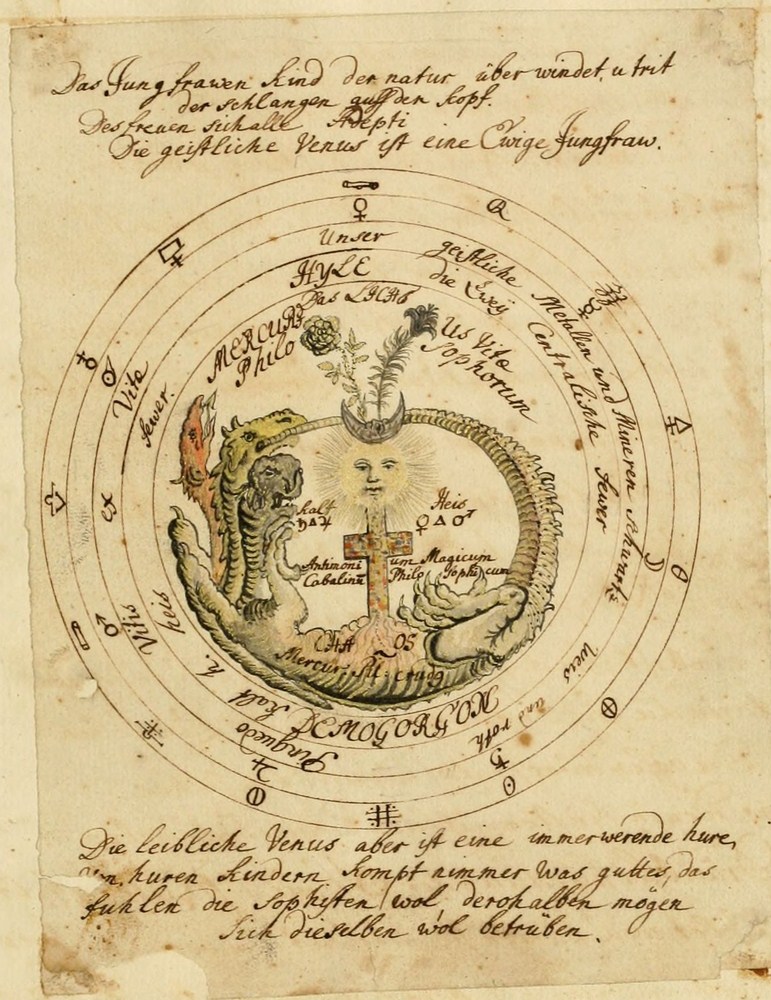 Das Jungfrawen Kind der natur über windet, u trit
der schlangen auff den Kopf.
Des freuen sich alle Adepti
Die geistliche Venus ist eine Ewige Jungfraw.
♀
Unser
HYLE
Das LICHt
geistliche Metallen und Mineren schwartz
die Zwey Centralische fewer
MERCURI us Vitæ
Philo sophorum
Vita
fewer.
Kalt
♄ 🜂 ♃
Heis
♀ 🜂 ♂
Antimoni um Magicum
Cabalinū Philo sophi cum
CHA OS
Mercur: Sil: crudg
heis
h. Kalt
Vitis
DEMOGORGON
Pinguedo
weis
und roth
Die leibliche Venus aber ist eine immerwerende hure,
huren Kindern Kompt nimmer was guttes, das
fuhlen die sophisten wol derohalben mögen
sich dieselben wol betrüben.